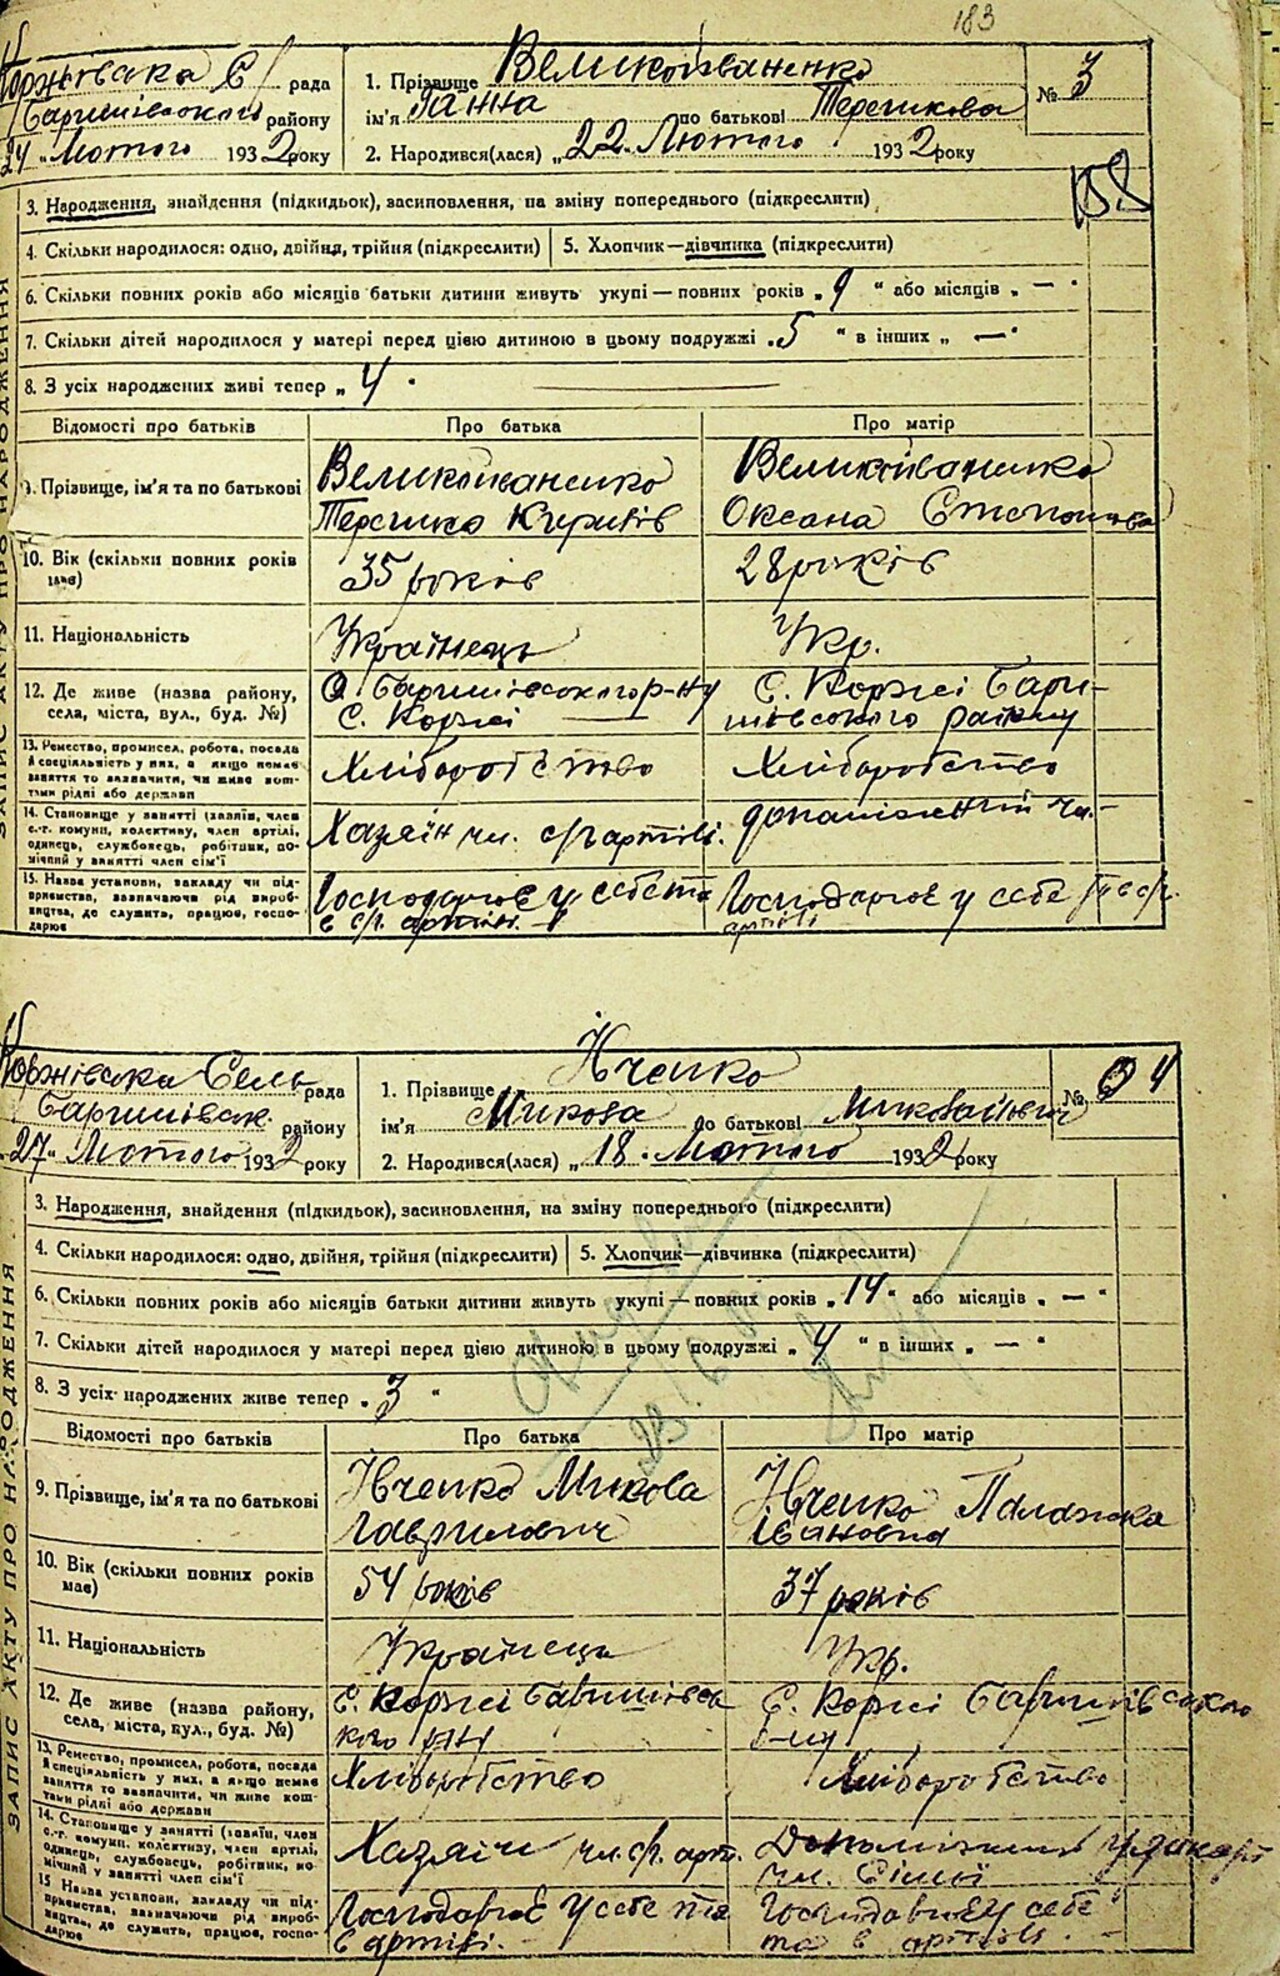 183
Коржівська С/ рада
Баришівського району
24 „ Лютого 1932 року
1. Прізвище Великоіваненко
ім'я Ганна по батькові Терешкова
2. Народився(лася) „ 22. Лютого 1932 року
№ 3
3. Народження, знайдення (підкидьок), засиновлення, на зміну попереднього (підкреслити)
4. Скільки народилося: одно, двійня, трійня (підкреслити) 5. Хлопчик—дівчинка (підкреслити)
6. Скільки повних років або місяців батьки дитини живуть укупі — повних років „ 9 “ або місяців „ — “
7. Скільки дітей народилося у матері перед цією дитиною в цьому подружжі „ 5 “ в інших „ — “
8. З усіх народжених живі тепер „ 4 “
Відомості про батьків Про батька Про матір
9. Прізвище, ім'я та по батькові
Великоіваненко
Терешко Кирилів
Великоіваненко
Оксана Степанова
10. Вік (скільки повних років
має)
35 років
28 років
11. Національність
Українець
Укр.
12. Де живе (назва району,
села, міста, вул., буд. №)
Баришівського р-ну
С. Коржі
С. Коржі Бари-
шівського району
13. Ремество, промисел, робота, посада
й спеціяльність у них, а якщо немає
заняття то зазначити, чи живе кош-
тами рідні або держави
Хліборобство
Хліборобство
14. Становище у занятті (хазяїн, член
с.-г. комуни, колективу, член артілі,
одинець, службовець, робітник, по-
мічний у занятті член сім'ї
Хазяїн чл. с/г артілі.
допоміжний чл.-
15. Назва установи, закладу чи під-
приємства, зазначаючи рід вироб-
ництва, де служить, працює, госпо-
дарює
Господарює у себе та
в с/г. артілі.
Господарює у себе та в с/г.
артілі
ЗАПИС АКТУ ПРО НАРОДЖЕННЯ
Коржівська Сель рада
Баришівськ. району
27 „ Лютого 1932 року
1. Прізвище Ївченко
ім'я Микола по батькові Миколайович
2. Народився(лася) „ 18. Лютого 1932 року
№ 4
3. Народження, знайдення (підкидьок), засиновлення, на зміну попереднього (підкреслити)
4. Скільки народилося: одно, двійня, трійня (підкреслити) 5. Хлопчик—дівчинка (підкреслити)
6. Скільки повних років або місяців батьки дитини живуть укупі — повних років „ 14 “ або місяців „ — “
7. Скільки дітей народилося у матері перед цією дитиною в цьому подружжі „ 4 “ в інших „ — “
8. З усіх народжених живе тепер „ 3 “
Відомості про батьків Про батька Про матір
9. Прізвище, ім'я та по батькові
Ївченко Микола
Гаврилович
Ївченко Палажка
Івановна
10. Вік (скільки повних років
має)
54 років
37 років
11. Національність
Українець
Укр.
12. Де живе (назва району,
села, міста, вул., буд. №)
С. Коржі Баришівсь
кого р-ну
С. Коржі Баришівського
р-ну
13. Ремество, промисел, робота, посада
й спеціяльність у них, а якщо немає
заняття то зазначити, чи живе кош-
тами рідні або держави
Хліборобство
Хліборобство
14. Становище у занятті (хазяїн, член
с.-г. комуни, колективу, член артілі,
одинець, службовець, робітник, по-
мічний у занятті член сім'ї
Хазяїн чл. с/г. арт.
Допоміжний
чл. Сімьї
15 Назва установи, закладу чи під-
приємства, зазначаючи рід вироб-
ництва, де служить, працює, госпо-
дарює
Господарює у себе та
в артілі.
Господарює у себе
та в артілі.
ЗАПИС АКТУ ПРО НАРОДЖЕННЯ